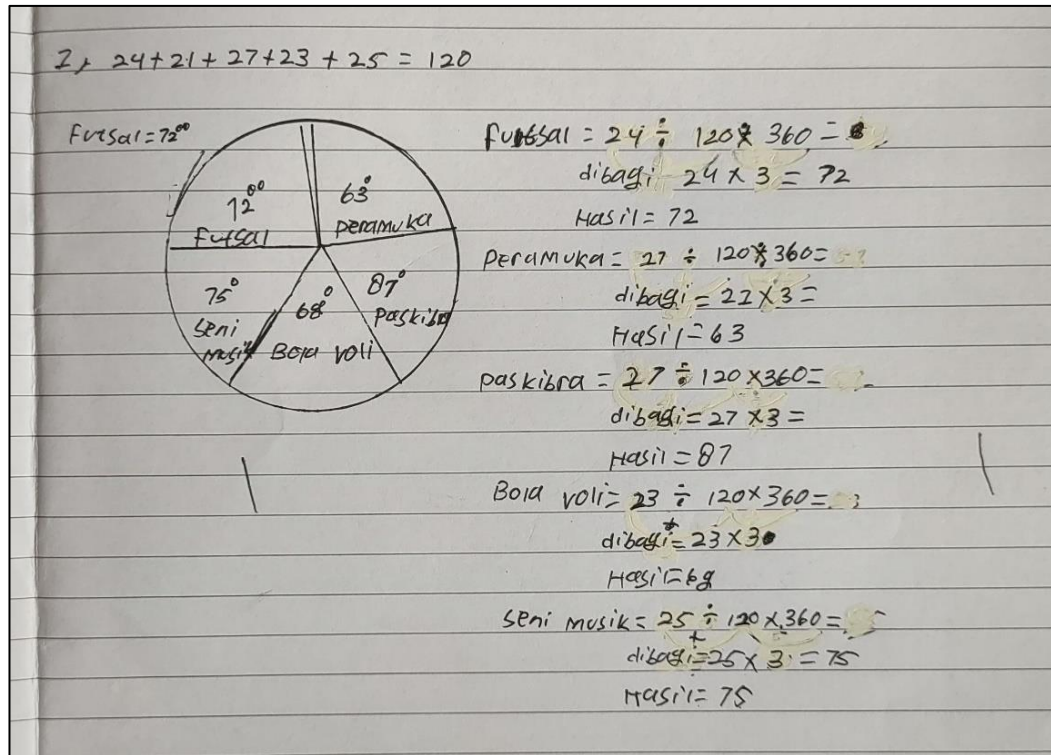 1, 24+21+27+23+25 = 120
Futsal = 72°°
72°°
Futsal
63°
Peramuka
87°
Paskibra
68°
Bola voli
75°
Seni
musik
Futsal = 24 ÷ 120 × 360 =
dibagi 24 × 3 = 72
Hasil = 72
Peramuka = 27 ÷ 120 × 360 =
dibagi = 21 × 3 =
Hasil = 63
Paskibra = 27 ÷ 120 × 360 =
dibagi = 27 × 3 =
Hasil = 87
Bola voli = 23 ÷ 120 × 360 =
dibagi = 23 × 3
Hasil = 69
Seni musik = 25 ÷ 120 × 360 =
dibagi = 25 × 3 = 75
Hasil = 75